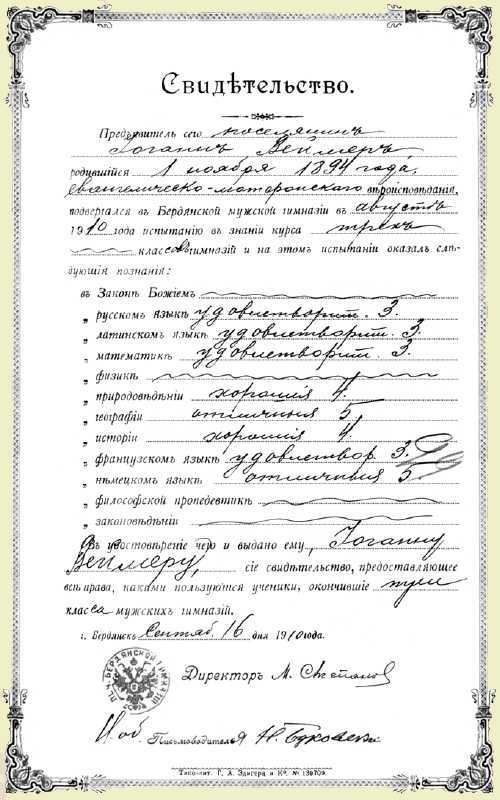 Свидѣтельство.
Предъявитель сего поселянинъ
Іоганнъ Веймеръ
родившійся 1 ноября 1894 года,
евангелическо-лютеранскаго вѣроисповѣданія,
подвергался въ Бердянской мужской гимназіи въ августѣ
1910 года испытанію въ знаніи курса трехъ
классовъ гимназій и на этомъ испытаніи оказалъ слѣ-
дующія познанія:
въ Законѣ Божіемъ
„ русскомъ языкѣ удовлетворит. 3.
„ латинскомъ языкѣ удовлетворит. 3.
„ математикѣ удовлетворит. 3.
„ физикѣ
„ природовѣдѣніи хорошія 4.
„ географіи отличныя 5.
„ исторіи хорошія 4.
„ французскомъ языкѣ удовлетвор. 3.
„ нѣмецкомъ языкѣ отличныя 5.
„ философской пропедевтикѣ
„ законовѣдѣніи
Въ удостовѣреніе чего и выдано ему, Іоганну
Веймеру, сіе свидѣтельство, предоставляющее
всѣ права, какими пользуются ученики, окончившіе три
класса мужскихъ гимназій.
г. Бердянскъ Сентяб. 16 дня 1910 года.
Директоръ М.
И об. Письмоводителя
Типо-лит. Г. А. Эдигера и К°. № 139709.